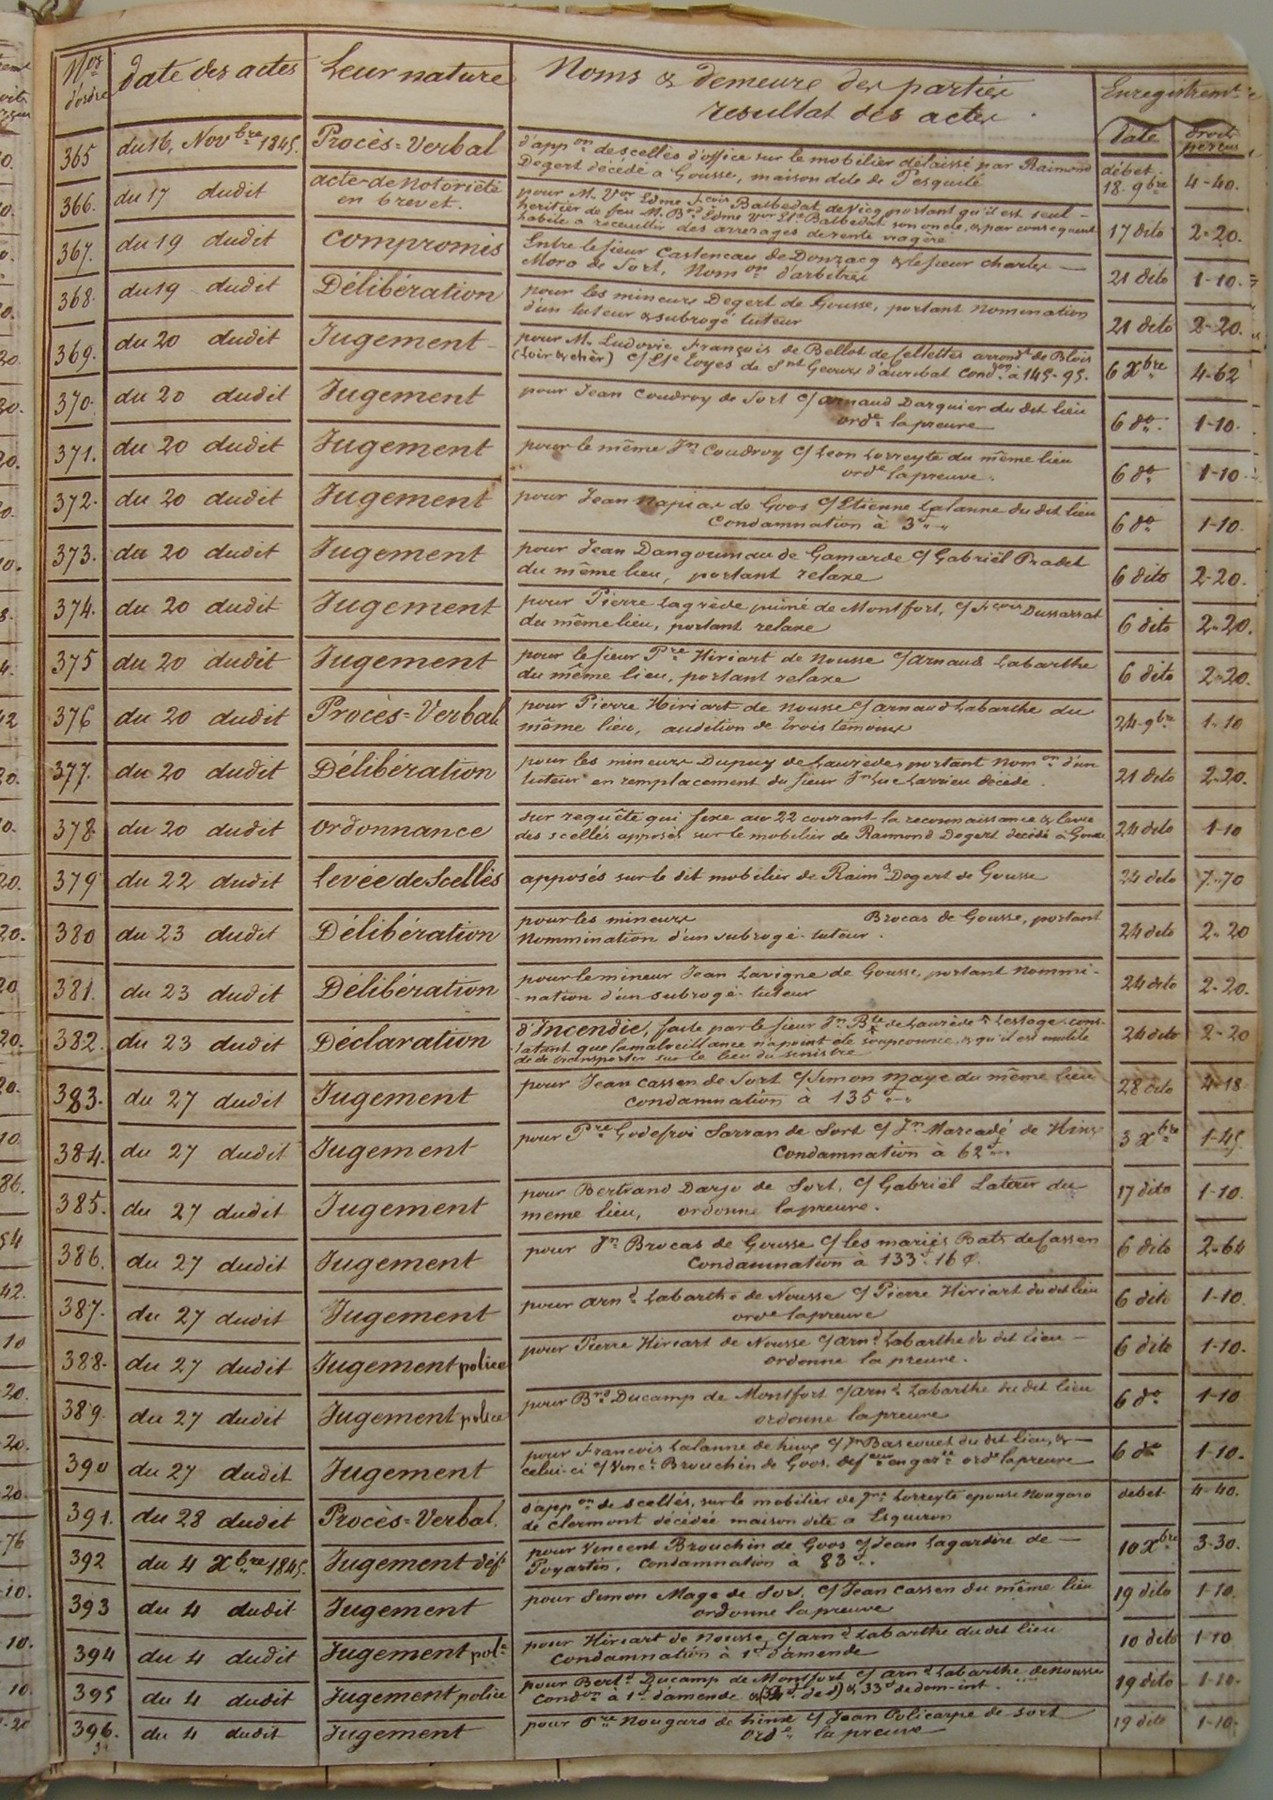 Nos d'ordre | date des actes | Leur nature | Noms & demeure des parties | Enregistremt
resultat des actes | date | droits perçus
365 du 16, Novbre 1845. Procès=Verbal d'appon de scellés d'office sur le mobilier délaissé par Raimond débet 4-40.
Degert décédé a Gousse, maison dite de Pesquité 18. 9bre
366. du 17 dudit acte de Notoriété pour M. Vor Edme Fcois Basbedat de Vicq portant qu'il est seul -
en brevet. heritier de feu M. Bd Edme Vor Ete Basbedat son oncle, & par consequent
habile a receuillir des arrerages de rente viagère 17 dito 2-20.
367. du 19 dudit compromis Entre le sieur Castencau de Donzacq & le sieur charles
Moro de Sort, Nomon d'arbitres 21 dito 1-10.
368. du 19 dudit Délibération pour les mineurs Degert de Gousse, portant Nomination
d'un tuteur & subrogé tuteur 21 dito 2-20.
369. du 20 dudit Jugement pour M. Ludovic François de Bellot de Cellettes arrondt de Blois
(Loir & cher) c/ Ete Loyes de Snt Geours d'auribat Condon à 145-95. 6 Xbre 4-62
370. du 20 dudit Jugement pour Jean Coudroy de Sort c/ arnaud Darquier du dit lieu
orde la preuve 6 do 1-10.
371. du 20 dudit Jugement pour le même Jn Coudroy c/ Leon Lorreyte du même lieu
orde la preuve. 6 do 1-10
372. du 20 dudit Jugement pour Jean Napias de Goos c/ Etienne Lalanne du dit lieu
Condamnation à 3f 6 do 1-10.
373. du 20 dudit Jugement pour Jean Dangoumau de Gamarde c/ Gabriël Pradet
du même lieu, portant relaxe 6 dito 2-20.
374. du 20 dudit Jugement pour Pierre Lagrède puiné de Montfort, c/ Fcois Dussarrat
du même lieu, portant relaxe 6 dito 2-20.
375 du 20 dudit Jugement pour le sieur Pre Hiriart de Nousse c/ Arnaud Labarthe
du même lieu, portant relaxe 6 dito 2-20.
376 du 20 dudit Procès=Verbal pour Pierre Hiriart de Nousse c/ arnaud Labarthe du
même lieu, audition de trois témoins 24-9bre 1-10
377. du 20 dudit Délibération pour les mineurs Dupuy de Laurède, portant Nomon d'un
tuteur en remplacement du sieur Jn Luc Larrieu décédé. 21 dito 2-20.
378 du 20 dudit Ordonnance sur requête qui fixe au 22 courant la reconnaissance & levée
des scellés apposés sur le mobilier de Raimond Degert décédé à Gousse 24 dito 1-10
379 du 22 dudit Levée de Scellés apposés sur le dit mobilier de Raimd Degert de Gousse 24 dito 7-70
380 du 23 dudit Délibération pour les mineurs Brocas de Gousse, portant
Nommination d'un subrogé-tuteur. 24 dito 2-20
381. du 23 dudit Délibération pour le mineur Jean Lavigne de Gousse, portant Nommi-
-nation d'un subrogé-tuteur 24 dito 2-20.
382. du 23 dudit Déclaration d'Incendie, faite par le sieur Jn Bte de Laurède Lestage cons-
-tatant que la malveillance n'a point été soupconnée, & qu'il est inutile
de se transporter sur le lieu du sinistre 24 dito 2-20
383. du 27 dudit Jugement pour Jean Cassen de Sort c/ Simon Maye du même lieu
condamnation à 135f 28 dito 4-18
384. du 27 dudit Jugement pour Pre Godefroi Sarran de Sort c/ Jn Marcadé de Hinx
Condamnation a 62f 3 Xbre 1-45
385. du 27 dudit Jugement pour Bertrand Darjo de Sort, c/ Gabriël Latour du
même lieu, ordonne la preuve. 17 dito 1-10.
386. du 27 dudit Jugement pour Jn Brocas de Gousse c/ les mariés Bats de Cassen
Condamnation a 133f 16c 6 dito 2-64
387. du 27 dudit Jugement pour arnd Labarthe de Nousse c/ Pierre Hiriart du dit lieu
orde la preuve 6 dito 1-10
388. du 27 dudit Jugement police pour Pierre Hiriart de Nousse c/ arnd Labarthe du dit lieu -
ordonne la preuve. 6 dito 1-10.
389. du 27 dudit Jugement police pour Brd Ducamp de Montfort c/ arnd Labarthe du dit lieu
ordonne la preuve 6 do 1-10
390 du 27 dudit Jugement pour Francois Lalanne de hinx c/ Jn Bascouet du dit lieu, & -
celui-ci c/ Vinct Brouchin de Goos, defeur en garie orde la preuve 6 do 1-10.
391. du 28 dudit Procès=Verbal. d'appon de scellés, sur le mobilier de Jne Lorreyte epouse Nougaro
de Clermont décédée maison dite a Esquiron debet 4-40.
392 du 4 Xbre 1845. Jugement déf pour Vincent Brouchin de Goos c/ Jean Lagardère de -
Poyartin, Condamnation à 83f. 10 Xbre 3-30.
393 du 4 dudit Jugement pour Simon Mage de Sort, c/ Jean Cassen du même lieu
ordonne la preuve 19 dito 1-10.
394 du 4 dudit Jugement pole pour Hiriart de Nousse, c/ arnd Labarthe du dit lieu
Condamnation à 1f d'amende 10 dito 1-10
395 du 4 dudit Jugement police pour Bertd Ducamp de Montfort c/ arnd Labarthe de Nousse
Condon à 1f d'amende & 33f de dom-int. 19 dito 1-10.
396. du 4 dudit Jugement pour Pre Nougaro de hinx c/ Jean Policarpe de Sort
orde la preuve 19 dito 1-10.